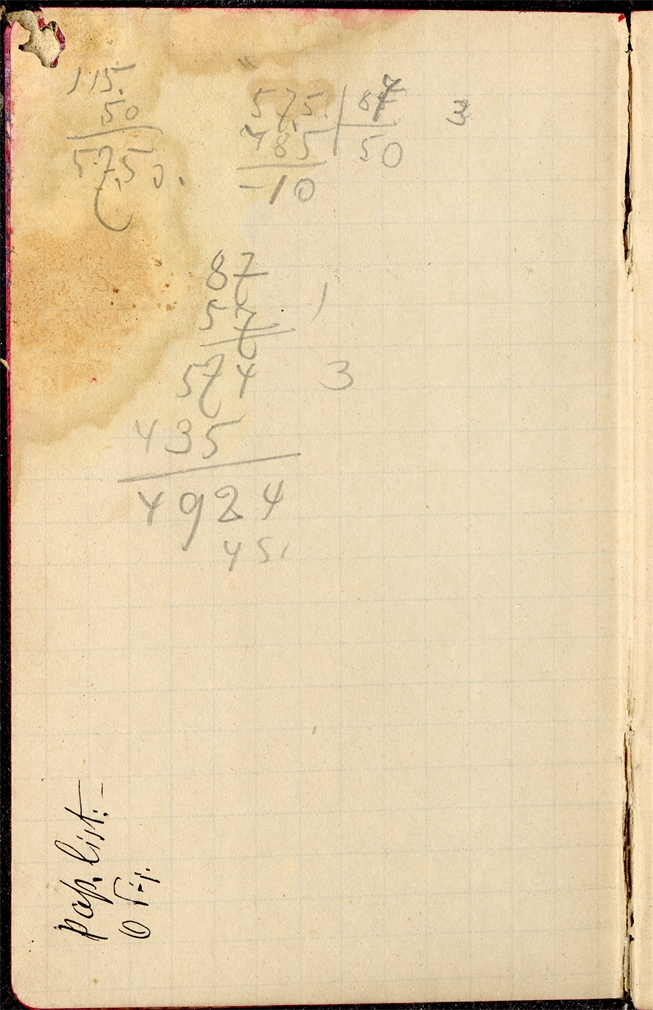 115.
50
5750.
575. 87 3
485 50
-10
87
57
574 3
435
4924
45
pap. list:-